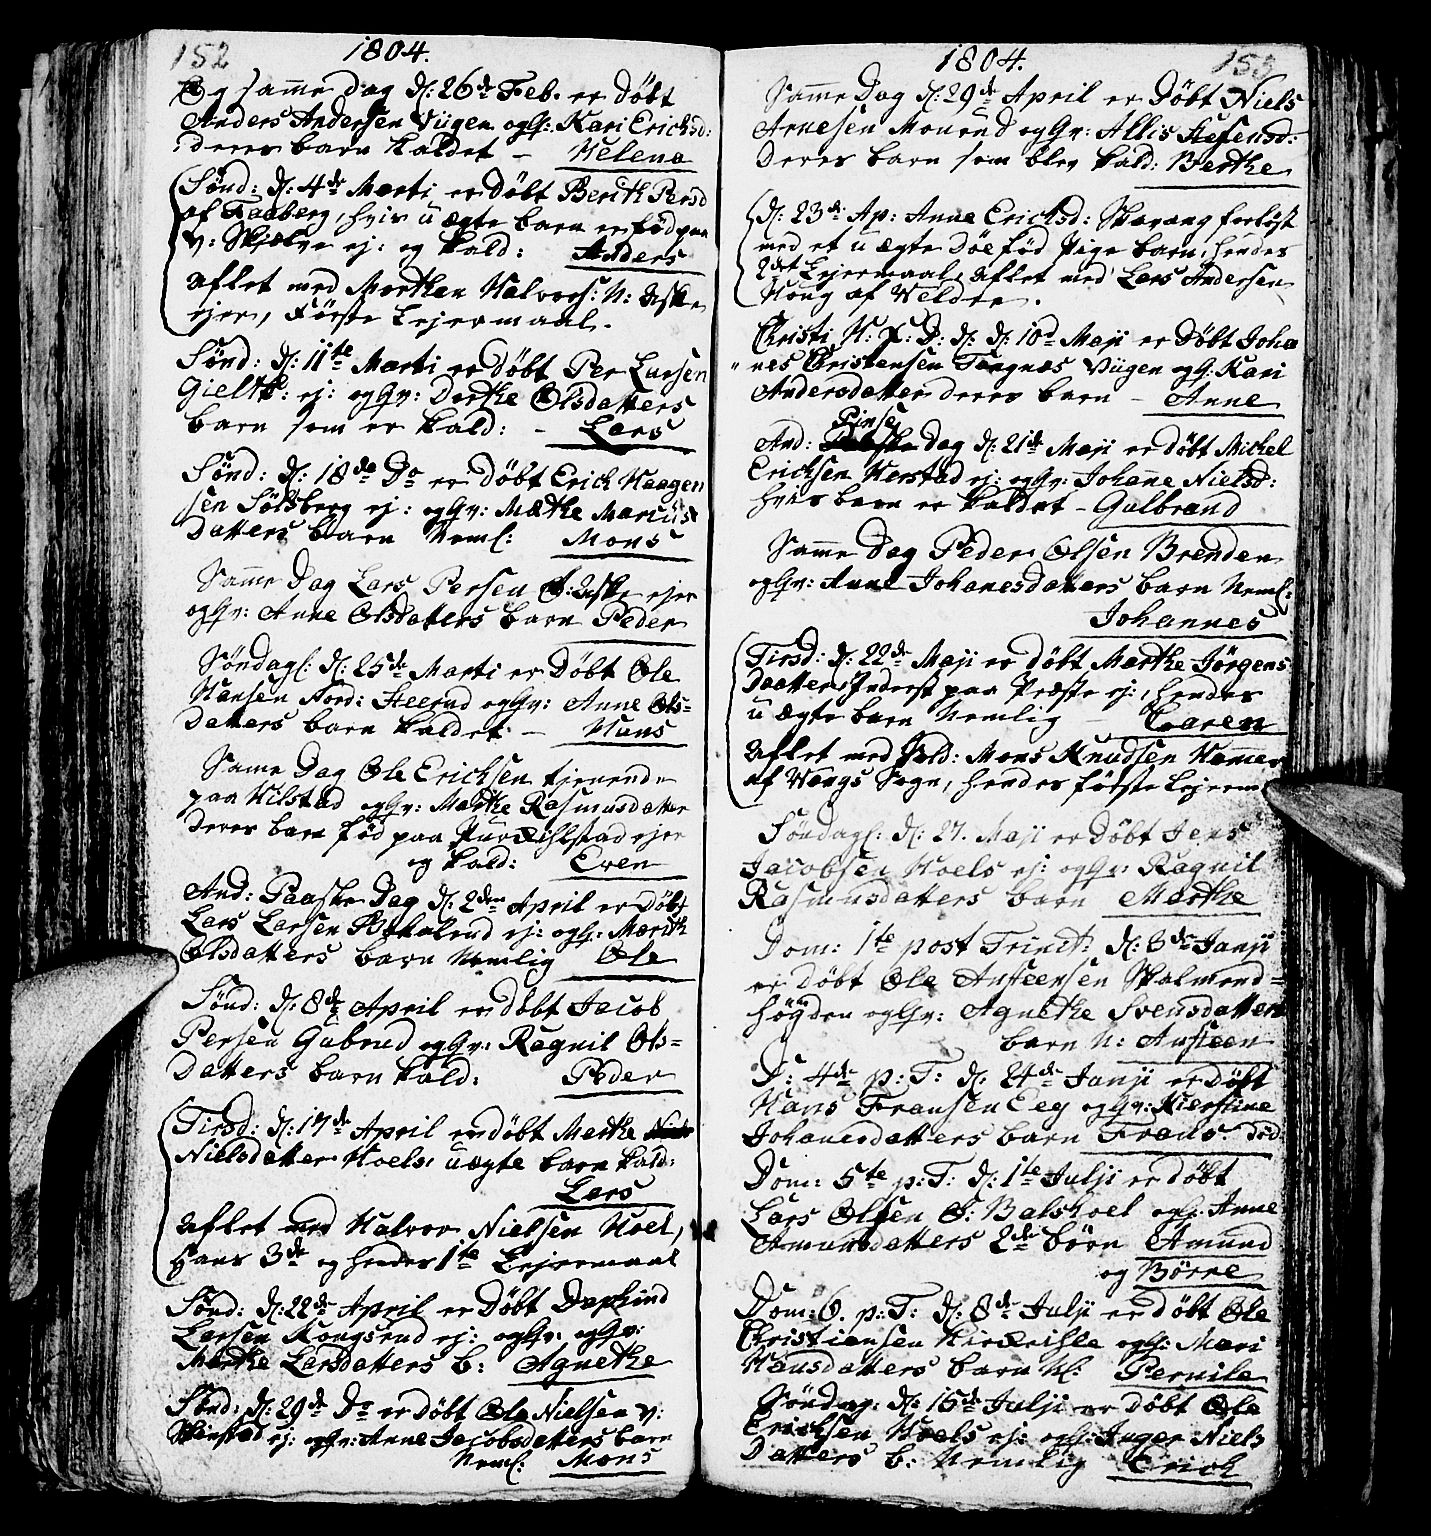 152
1804.
Og samme dag d: 26de Feb. er døbt
Anders Andersen Viigen og Hr: Kari Ericksd:
deres barn kaldet – Helena
Sønd: d: 4de Marti er døbt Berith Persd
af Faaberg, hvis uægte barn er fød paa
V: Skjelve ej: og kald: Anders
aflet med Morthen Halvors: N: Aske
ejer, Første Lejermaal.
Sønd: d: 11te Marti er døbt Per Larsen
Gielt: ej: og Hr: Dorthe Olsdatters
barn som er kald: – Lars
Sønd: d: 18de Do er døbt Erick Haagen
sen Solberg ej: og Hr: Mæthe Marcus
Datters barn Neml: Mons
Samme Dag Lars Persen Ø: Aske ejer
og Hr: Anne Olsdatters barn Peder
Søndagl: d: 25de Marti er døbt Ole
Hansen Nord: Steerud og Hr: Anne Ols-
Datters barn kaldet – Hans
Samme Dag Ole Ericksen tjenende
paa Hilstad og Hr: Marthe Rasmusdatter
deres barn fød paa ejer
og kald: Even
And: Paaske Dag d: 2den April er døbt
Lars Larsen ej: og Hr: Marith
Olsdatters barn Nemlig Ole
Sønd: d: 8de April er døbt Jacob
Persen Gubrud og Hr: Ragnil Ols-
Datters barn kald: Peder
Tirsd: d: 17de April er døbt Marthe
Nielsdatter Hoels uægte barn kald:
Lars
aflet med Halvor Nielsen Hoel,
Hans 3de og hendes 1te Lejermaal
Sønd: d: 22de April er døbt Daphind
Larsen Kongsrud ej: og Hr: og Hr:
Marthe Larsdatters b: Agnethe
Sønd: d: 29de Do er døbt Ole Nielsen V:
Skinstad ej: og Hr: Anne Jacobsdatters barn
Neml: Mons
153
1804.
Samme Dag d: 29de April er Døbt Niels
Arnesen Monrud og Hr: Allis Stefensd:
deres barn som blev kald: Berthe
d: 23de Ap: Anne Ericksd: Skavang forløst
med et uægte døefød Pige barn, hendes
2det Lejermaal, aflet med Lars Andersen
Houg af Veldre.
Christi H: F: D: d: 10d Maji er Døbt Joha
nes Christensen Tangnæs Viigen og Hr: Kari
Andersdatter deres barn – Anne
Pinse
And: Dag d: 21de Maji er døbt Mickel
Ericksen Herstad ej: og Hr: Johane Nielsd:
hvis barn er kaldet – Gulbrand
Samme Dag Peder Olsen Brenden
og Hr: Anne Johanesdatters barn Neml:
Johannes
Tirsd: d: 22de Maji er døbt Marthe Jörgens
Daatter, Inderst paa Præste ej:, hendes
uægte barn Nemlig – Caren
aflet med Sold: Mons Knudsen Hammer
af Vangs Sogn, hendes første Lejerm
Søndagl: d: 27. Maji er Døbt Jens
Jacobsen Hoels ej: og Hr: Ragnil
Rasmusdatters barn Marthe
Dom: 1te post Trinet: d: 3de Junji
er døbt Ole Ansteensen Skalmerud-
högden og Hr: Agnethe Svensdatters
barn N: Ansteen
D: 4de p: T: d: 24de Junji er døbt
Hans Fransen Eeg og Hr: Kierstine
Johanesdatters barn Frans. död
Dom: 5te p: T: d: 1te Julji er døbt
Lars Olsen Ø: Balshoel og Hr: Anne
Amundsdatters 2de børn Amund
og Börre
Dom: 6. p: T: d: 8de Julji er døbt Ole
Christiansen og Hr: Mari
Hansdatters barn N: Pernile
Søndag: d: 15de Julji er døbt Ole
Ericksen Hoels ej: og Hr: Inger Niels
Datters b: Nemlig Erick